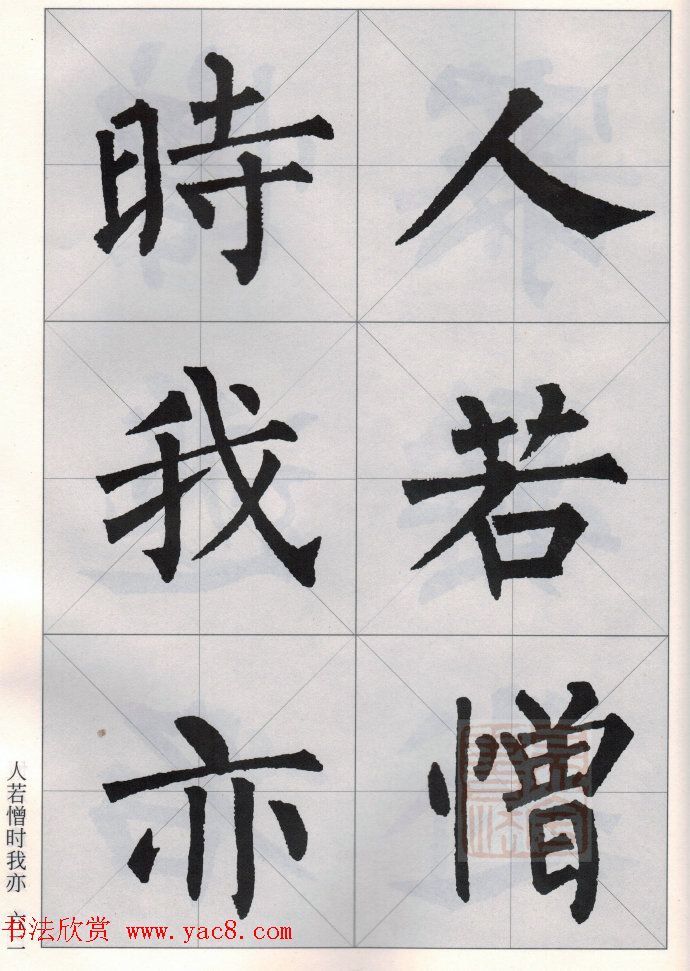 人若憎
時我亦
人若憎时我亦 六二
书法欣赏 www.yac8.com